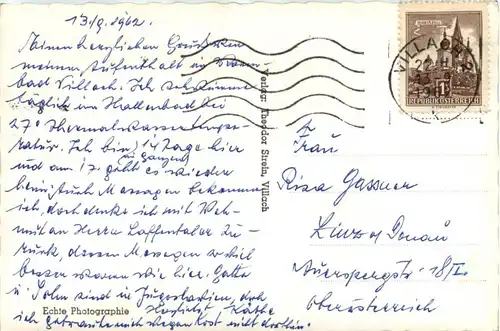 13./9. 1962.
Einen herzlichen Gruß von
meinem Aufenthalt in Warm-
bad Villach. Ich schwimme
täglich im Hallenbad bei
27° Thermalwassertempe-
ratur. Ich bin 14 Tage hier
im ganzen
und am 17. geht es wieder
heim. Auch Massagen bekomme
ich, doch denke ich mit Weh-
mut an Herrn Laffentaler zu-
rück, dessen Massagen so viel
besser waren wie hier. Gatte
u. Sohn sind in Jugoslawien, doch
ich getraute mich wegen Kost nicht dorthin!
Herzlichst Käthe
Echte Photographie
Verlag: Theodor Strein, Villach
VILLACH
REPUBLIK ÖSTERREICH
Frau
Risa Gassner
Linz a/Donau
Auerspergstr. 18/I.
Oberösterreich